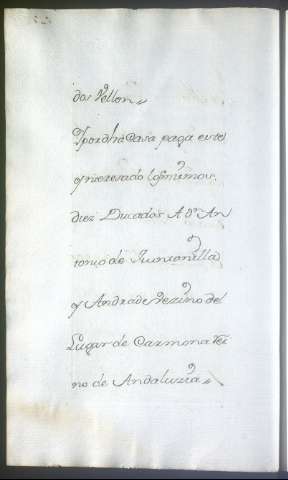 dos Vellon
Y por dha Casa paga este
Ynteresado los mismos
diez Ducados A Dn An
tonio de Quintanilla
y Andrade Vezino del
Lugar de Carmona Rei
no de Andaluzia